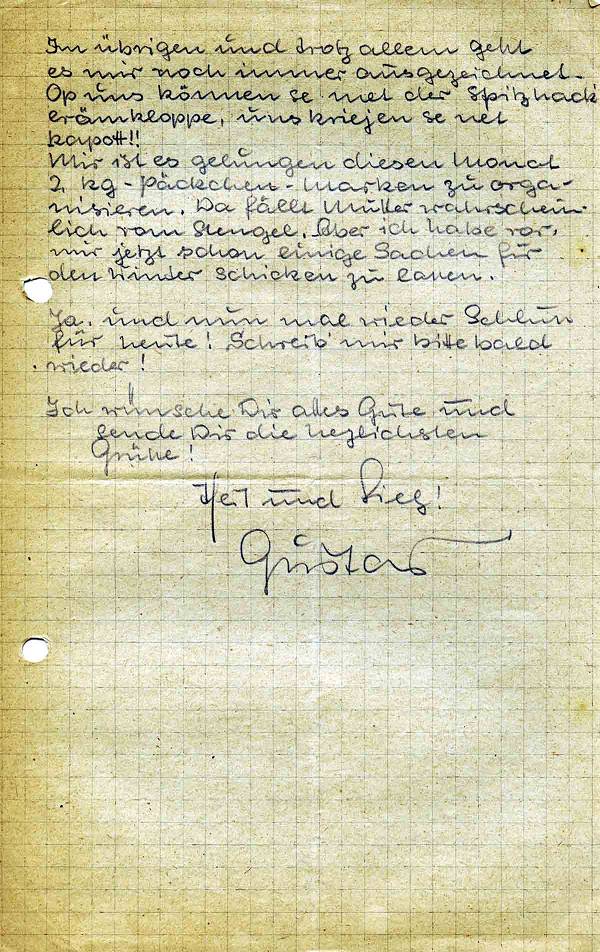 Im übrigen und trotz allem geht
es mir noch immer ausgezeichnet.
Op uns können se met der Spitzhack
erömkloppe, uns kriejen se net
kapott!!
Mir ist es gelungen diesen Monat
2 kg-Päckchen-Marken zu orga-
nisieren. Da fällt Mutter wahrschein-
lich vom Stengel. Aber ich habe vor,
mir jetzt schon einige Sachen für
den Winter schicken zu lassen.
Ja, und nun mal wieder Schluß
für heute! Schreib' mir bitte bald
wieder!
Ich wünsche Dir alles Gute und
sende Dir die herzlichsten
Grüße!
Heil und Sieg!
Gustav